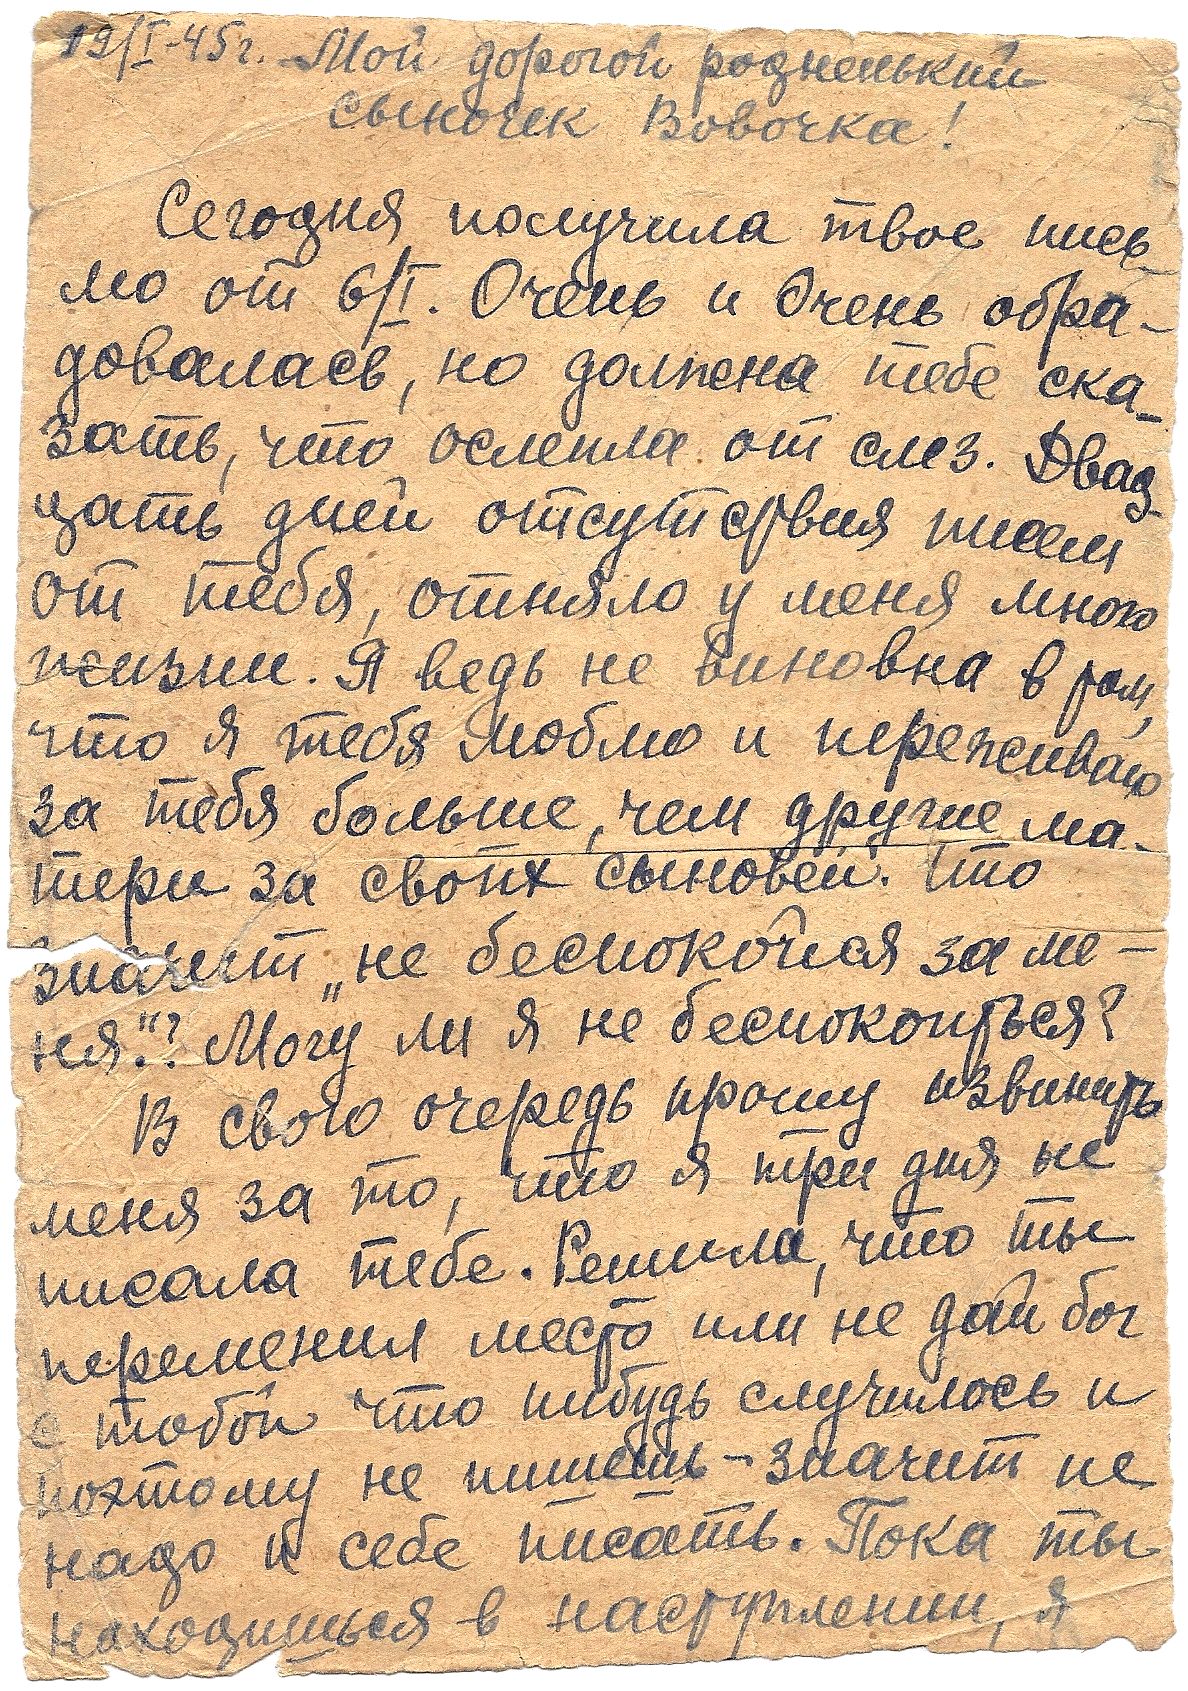 19/I-45г. Мой дорогой родненький
сыночек Вовочка!
Сегодня получила твое пись-
мо от 6/I. Очень и очень обра-
довалась, но должна тебе ска-
зать, что ослепла от слез. Двад-
цать дней отсутствия писем
от тебя, отняло у меня много
жизни. Я ведь не виновна в том,
что я тебя люблю и переживаю
за тебя больше, чем другие ма-
тери за своих сыновей. Что
значит „не беспокойся за ме-
ня."? Могу ли я не беспокоиться?
В свою очередь прошу извинить
меня за то, что я три дня не
писала тебе. Решила, что ты
переменил место или не дай бог
с тобой что нибудь случилось и
поэтому не пишешь - значит не
надо и себе писать. Пока ты
находишься в наступлении, я